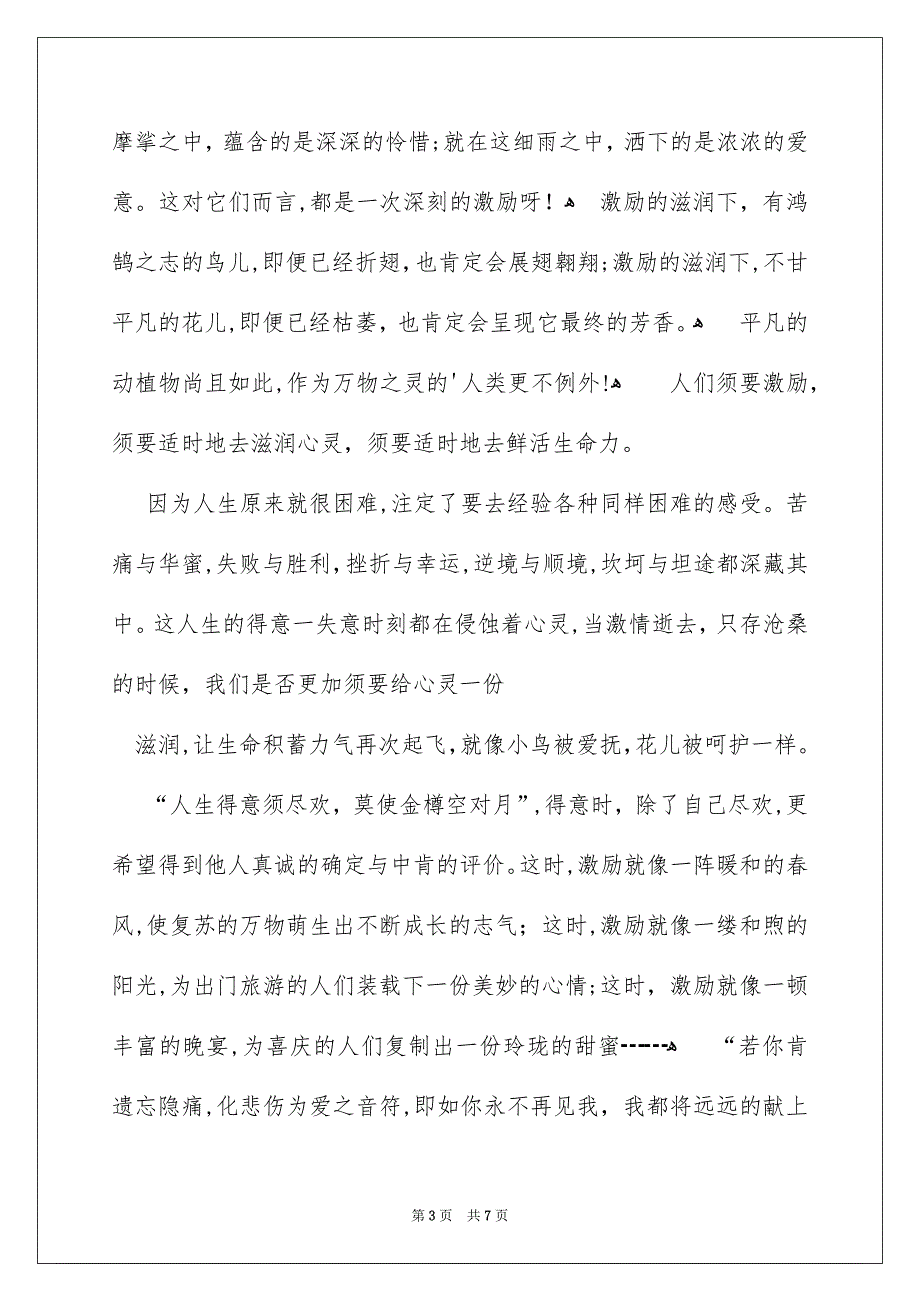 摩挲之中，蕴含的是深深的怜惜;就在这细雨之中，洒下的是浓浓的爱
意。这对它们而言,都是一次深刻的激励呀！ﻫ 激励的滋润下，有鸿
鹄之志的鸟儿,即便已经折翅，也肯定会展翅翱翔;激励的滋润下,不甘
平凡的花儿,即便已经枯萎，也肯定会呈现它最终的芳香。ﻫ 平凡的
动植物尚且如此,作为万物之灵的'人类更不例外!ﻫ 人们须要激励,
须要适时地去滋润心灵，须要适时地去鲜活生命力。
因为人生原来就很困难,注定了要去经验各种同样困难的感受。苦
痛与华蜜,失败与胜利，挫折与幸运,逆境与顺境,坎坷与坦途都深藏其
中。这人生的得意一失意时刻都在侵蚀着心灵,当激情逝去，只存沧桑
的时候，我们是否更加须要给心灵一份
滋润,让生命积蓄力气再次起飞,就像小鸟被爱抚,花儿被呵护一样。
“人生得意须尽欢，莫使金樽空对月”,得意时，除了自己尽欢,更
希望得到他人真诚的确定与中肯的评价。这时,激励就像一阵暖和的春
风,使复苏的万物萌生出不断成长的志气；这时,激励就像一缕和煦的
阳光,为出门旅游的人们装载下一份美妙的心情;这时，激励就像一顿
丰富的晚宴,为喜庆的人们复制出一份玲珑的甜蜜┅┅ﻫ “若你肯
遗忘隐痛,化悲伤为爱之音符,即如你永不再见我，我都将远远的献上
第 3 页 共 7 页